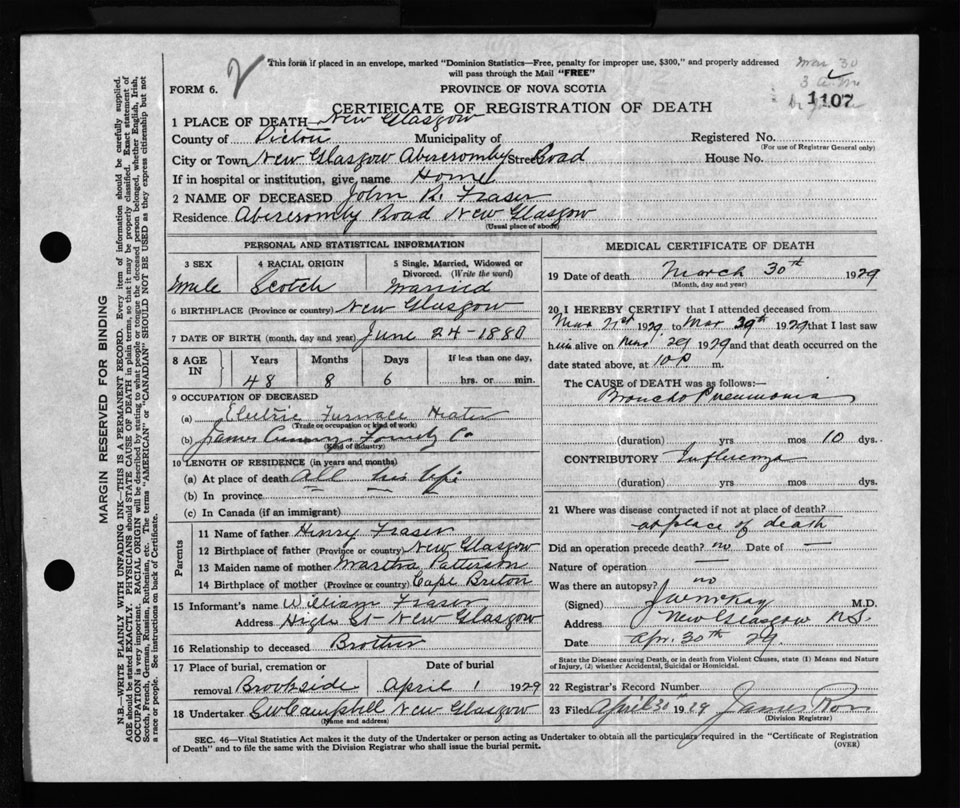 This form if placed in an envelope, marked "Dominion Statistics—Free, penalty for improper use, $300," and properly addressed
will pass through the Mail "FREE"
2
Mar 30
FORM 6.
PROVINCE OF NOVA SCOTIA
1107
CERTIFICATE OF REGISTRATION OF DEATH
1 PLACE OF DEATH New Glasgow
County of Pictou Municipality of Registered No.
(For use of Registrar General only)
City or Town New Glasgow Abercromby Street Road House No.
If in hospital or institution, give name Home
2 NAME OF DECEASED John R. Fraser
Residence Abercromby Road New Glasgow
(Usual place of abode)
PERSONAL AND STATISTICAL INFORMATION
3 SEX 4 RACIAL ORIGIN 5 Single, Married, Widowed or
Divorced. (Write the word)
Male Scotch Married
6 BIRTHPLACE (Province or country) New Glasgow
7 DATE OF BIRTH (month, day and year) June 24-1880
8 AGE IN Years Months Days If less than one day,
48 8 6 hrs. or min.
9 OCCUPATION OF DECEASED
(a) Electric Furnace Heater
(Trade or occupation or kind of work)
(b) James Co
(Kind of industry)
10 LENGTH OF RESIDENCE (in years and months)
(a) At place of death All his life
(b) In province
(c) In Canada (if an immigrant)
Parents
11 Name of father Henry Fraser
12 Birthplace of father (Province or country) New Glasgow
13 Maiden name of mother Martha Patterson
14 Birthplace of mother (Province or country) Cape Breton
15 Informant's name William Fraser
Address High St- New Glasgow
16 Relationship to deceased Brother
17 Place of burial, cremation or removal Brookside
Date of burial April 1 1929
18 Undertaker GW Campbell New Glasgow
(Name and address)
MEDICAL CERTIFICATE OF DEATH
19 Date of death March 30th 1929
(Month, day and year)
20 I HEREBY CERTIFY that I attended deceased from
Mar 21st 1929 to Mar 29th 1929 that I last saw
him alive on Mar 29 1929 and that death occurred on the
date stated above, at 10 P. m.
The CAUSE of DEATH was as follows:
Broncho Pneumonia
(duration) yrs mos 10 dys.
CONTRIBUTORY Influenza
(duration) yrs mos dys.
21 Where was disease contracted if not at place of death?
at place of death
Did an operation precede death? no Date of —
Nature of operation —
Was there an autopsy? no
(Signed) McKay M.D.
Address New Glasgow N.S.
Date Apr. 30th 29.
State the Disease causing Death, or in death from Violent Causes, state (1) Means and Nature
of Injury, (2) whether Accidental, Suicidal or Homicidal.
22 Registrar's Record Number
23 Filed April 30 1929 James Ross
(Division Registrar)
SEC. 46—Vital Statistics Act makes it the duty of the Undertaker or person acting as Undertaker to obtain all the particulars required in the "Certificate of Registration
of Death" and to file the same with the Division Registrar who shall issue the burial permit.
(OVER)
MARGIN RESERVED FOR BINDING
N.B.—WRITE PLAINLY WITH UNFADING INK—THIS IS A PERMANENT RECORD. Every item of information should be carefully supplied.
AGE should be stated EXACTLY. PHYSICIANS should STATE CAUSE OF DEATH in plain terms, so that it may be properly classified. Exact statement of
OCCUPATION is very important. RACIAL ORIGIN will be described by stating to what people or tongue the deceased person belonged, whether English, Irish,
Scotch, French, German, Russian, Ruthenian, etc. The terms "AMERICAN" or "CANADIAN" SHOULD NOT BE USED as they express citizenship but not
a race or people. See instructions on back of Certificate.